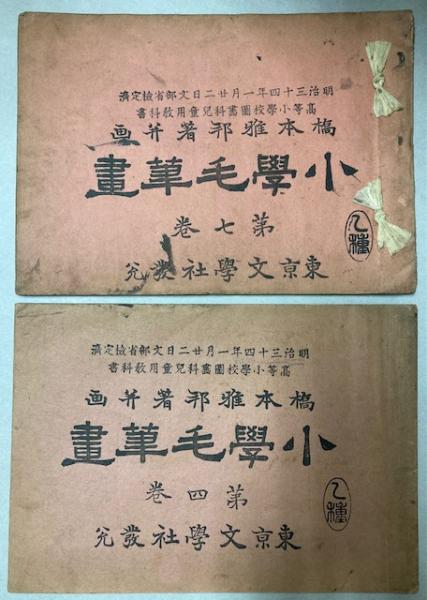 明治三十四年一月廿二日文部省檢定濟
高等小學校圖畫科兒童用教科書
橋本雅邦著并画
小學毛筆畫
第七卷
乙種
東京文學社發兌
明治三十四年一月廿二日文部省檢定濟
高等小學校圖畫科兒童用教科書
橋本雅邦著并画
小學毛筆畫
第四卷
乙種
東京文學社發兌